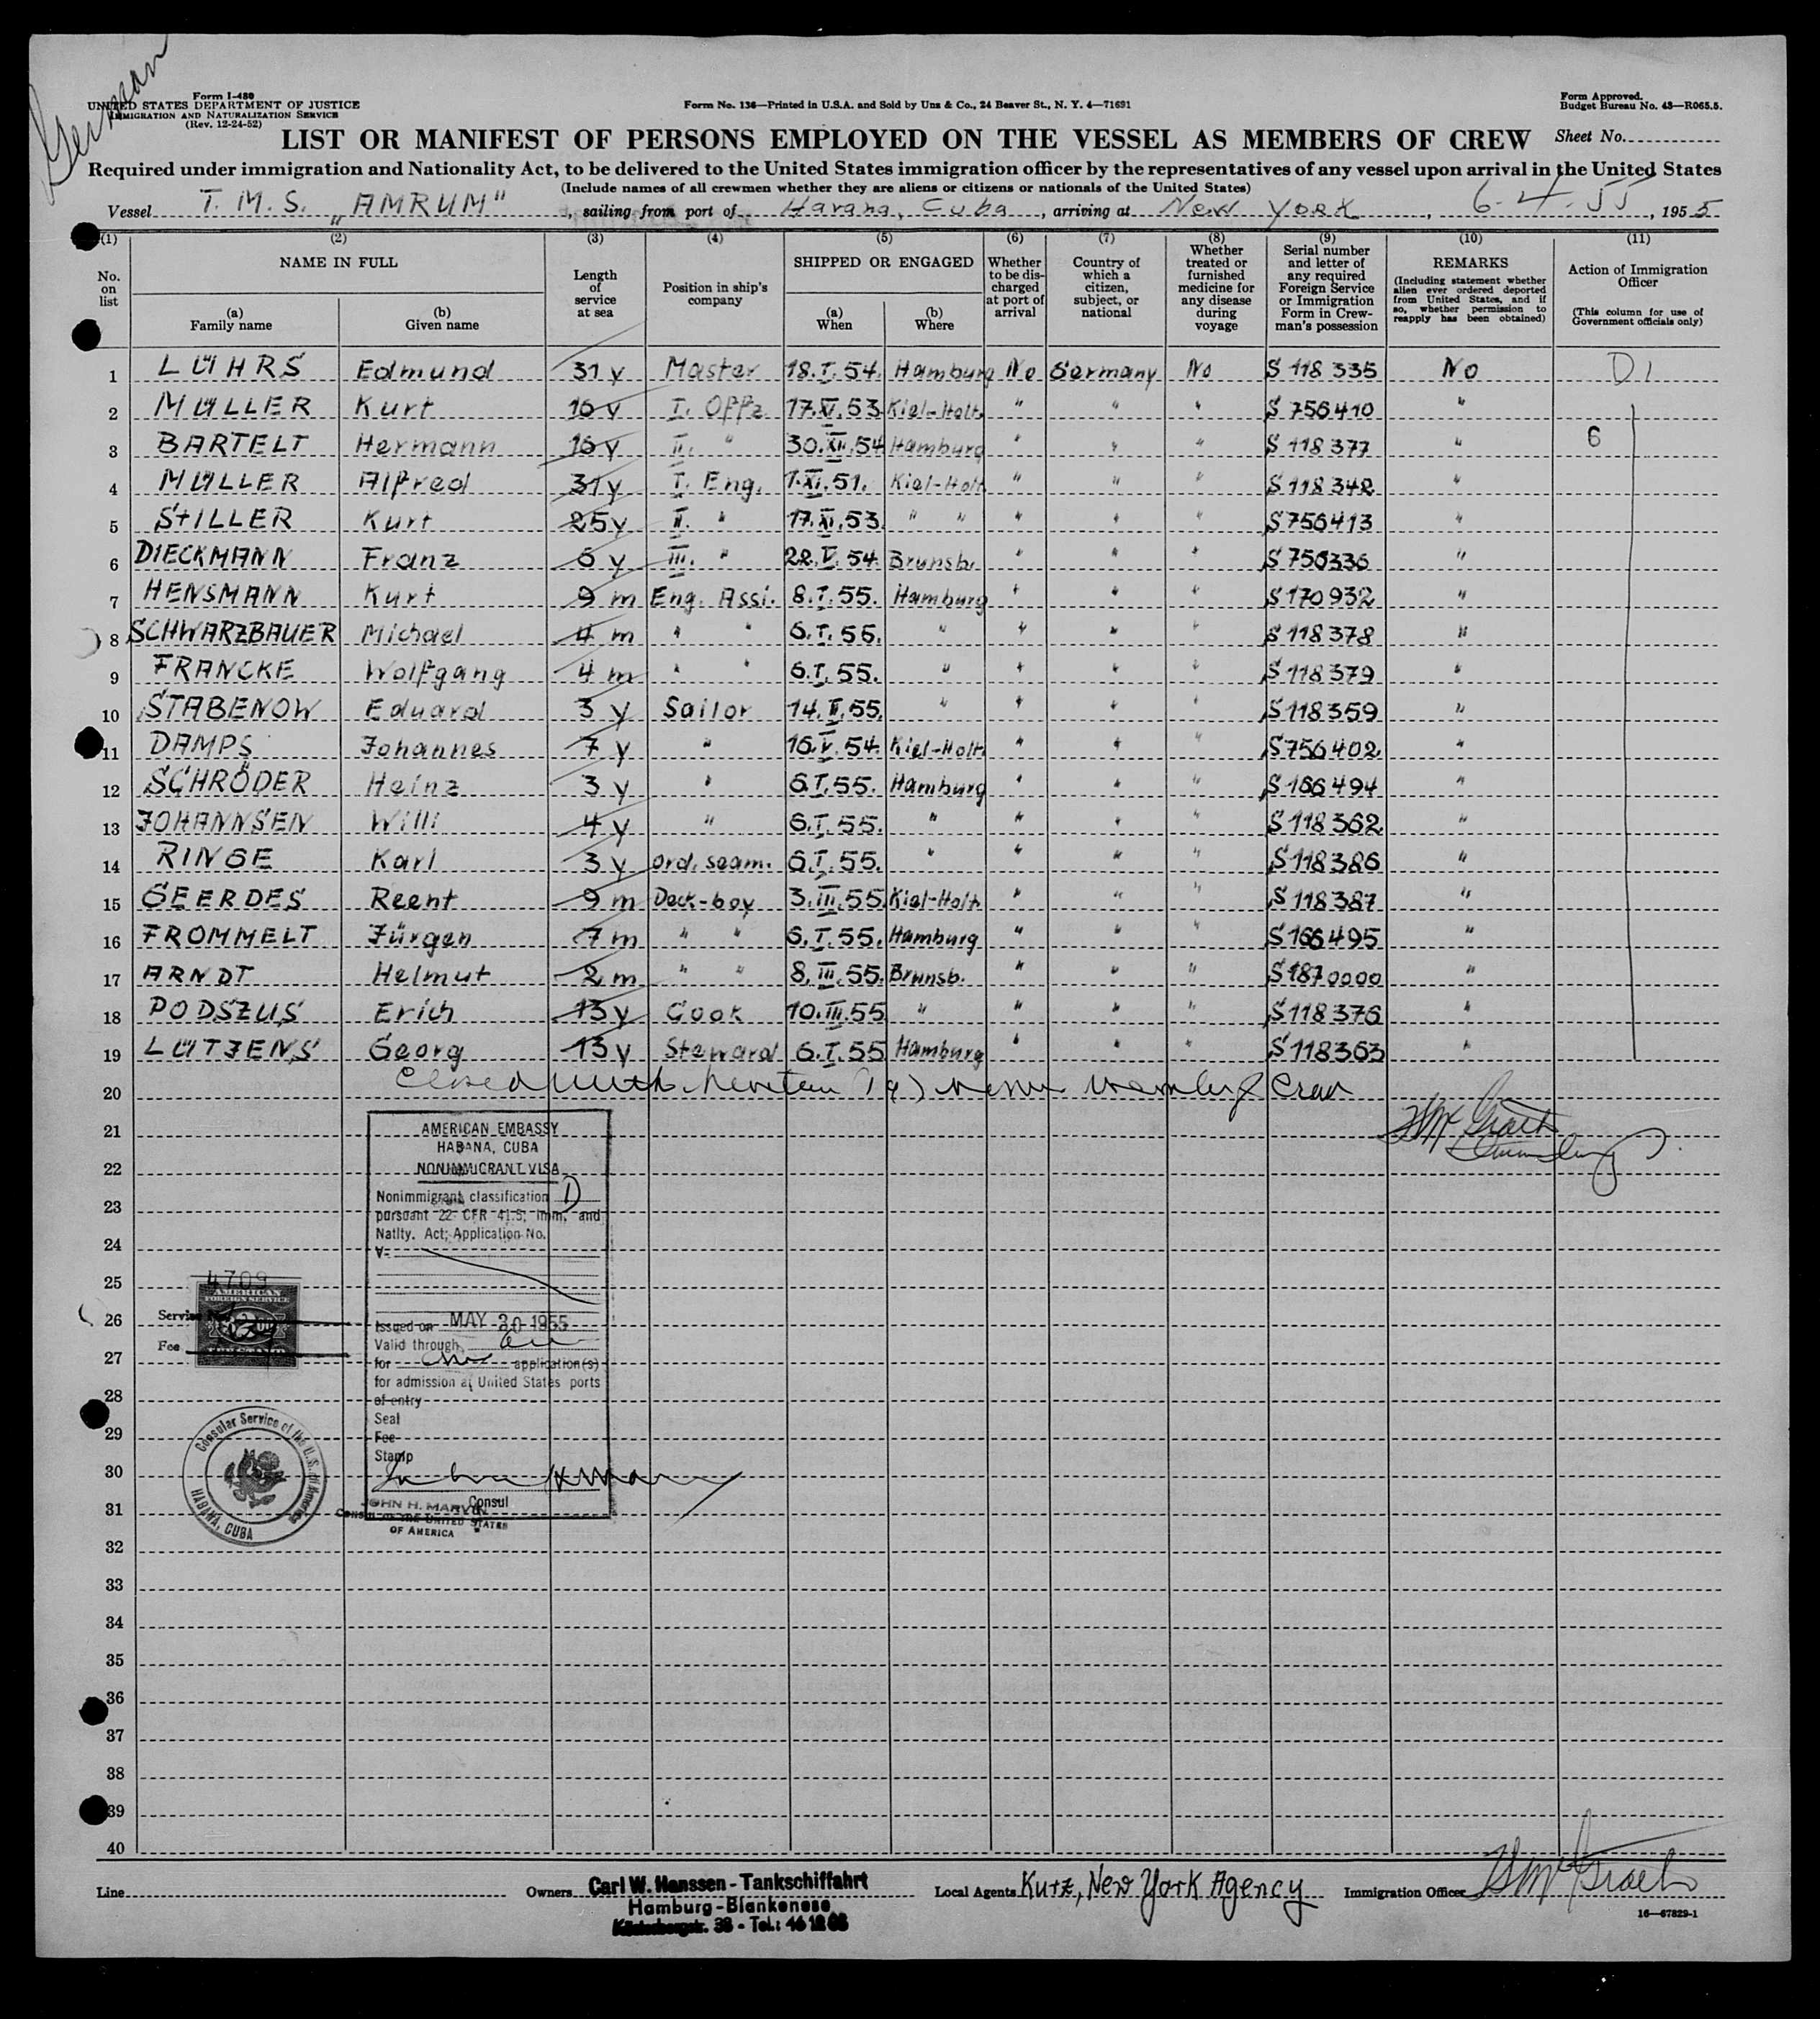 German
Form I-480
UNITED STATES DEPARTMENT OF JUSTICE
IMMIGRATION AND NATURALIZATION SERVICE
(Rev. 12-24-52)
Form No. 136—Printed in U.S.A. and Sold by Unz & Co., 24 Beaver St., N. Y. 4—71691
Form Approved.
Budget Bureau No. 43—R065.5.
LIST OR MANIFEST OF PERSONS EMPLOYED ON THE VESSEL AS MEMBERS OF CREW
Sheet No.
Required under immigration and Nationality Act, to be delivered to the United States immigration officer by the representatives of any vessel upon arrival in the United States
(Include names of all crewmen whether they are aliens or citizens or nationals of the United States)
Vessel T. M. S. „AMRUM", sailing from port of Havana, Cuba, arriving at New York, 6.4.55, 1955
(1) (2) (3) (4) (5) (6) (7) (8) (9) (10) (11)
No. on list
NAME IN FULL
(a) Family name
(b) Given name
Length of service at sea
Position in ship's company
SHIPPED OR ENGAGED
(a) When
(b) Where
Whether to be discharged at port of arrival
Country of which a citizen, subject, or national
Whether treated or furnished medicine for any disease during voyage
Serial number and letter of any required Foreign Service or Immigration Form in Crewman's possession
REMARKS
(Including statement whether alien ever ordered deported from United States, and if so, whether permission to reapply has been obtained)
Action of Immigration Officer
(This column for use of Government officials only)
1 LÜHRS Edmund 31 y Master 18.I.54. Hamburg No Germany No S 118 335 No D1
2 MÜLLER Kurt 16 y I. Offz. 17.XI.53 Kiel-Holt. " " " S 756410 "
3 BARTELT Hermann 16 y II. " 30.XII.54 Hamburg " " " S 118 377 " 6
4 MÜLLER Alfred 31 y I. Eng. 1.XI.51. Kiel-Holt. " " " S 118 342 "
5 STILLER Kurt 25 y II. " 17.XI.53. " " " " " S 756413 "
6 DIECKMANN Franz 6 y III. " 22.V.54. Brunsb. " " " S 756336 "
7 HENSMANN Kurt 9 m Eng. Assi. 8.I.55. Hamburg " " " S 170932 "
8 SCHWARZBAUER Michael 4 m " " 6.I.55. " " " " S 118 378 "
9 FRANCKE Wolfgang 4 m " " 6.I.55. " " " " S 118379 "
10 STABENOW Eduard 3 y Sailor 14.II.55. " " " " S 118359 "
11 DAMPS Johannes 7 y " 16.V.54. Kiel-Holt. " " " S 756402 "
12 SCHRÖDER Heinz 3 y " 6.I.55. Hamburg " " " S 166494 "
13 JOHANNSEN Willi 4 y " 6.I.55. " " " " S 118362 "
14 RINGE Karl 3 y ord. seam. 6.I.55. " " " " S 118386 "
15 GEERDES Reent 9 m Deck-boy 3.III.55. Kiel-Holt. " " " S 118387 "
16 FROMMELT Jürgen 7 m " " 6.I.55. Hamburg " " " S 166495 "
17 ARNDT Helmut 2 m " " 8.III.55. Brunsb. " " " S 1870000 "
18 PODSZUS Erich 13 y Cook 10.III.55 " " " " S 118376 "
19 LÜTJENS Georg 13 y Steward 6.I.55 Hamburg " " " S 118363 "
20 Closed with Nineteen (19) members Crew
21
22
23
24
25
26
27
28
29
30
31
32
33
34
35
36
37
38
39
40
AMERICAN EMBASSY
HABANA, CUBA
NONIMMIGRANT VISA
Nonimmigrant classification D
pursuant 22 CFR 41.5; Imm. and
Natlty. Act; Application No.
V-
Issued on MAY 30 1955
Valid through
for one application(s)
for admission at United States ports
of entry
Seal
Fee
Stamp
Consul
JOHN H. MARVIN
CONSUL OF THE UNITED STATES
OF AMERICA
4709
Service No.
Fee
AMERICAN
FOREIGN SERVICE
Consular Service of the U.S. of America
HABANA, CUBA
Line
Owners Carl W. Hanssen - Tankschiffahrt
Hamburg-Blankenese
38 - Tel.: 46 12 06
Local Agents Kurz, New York Agency
Immigration Officer
16—67829-1